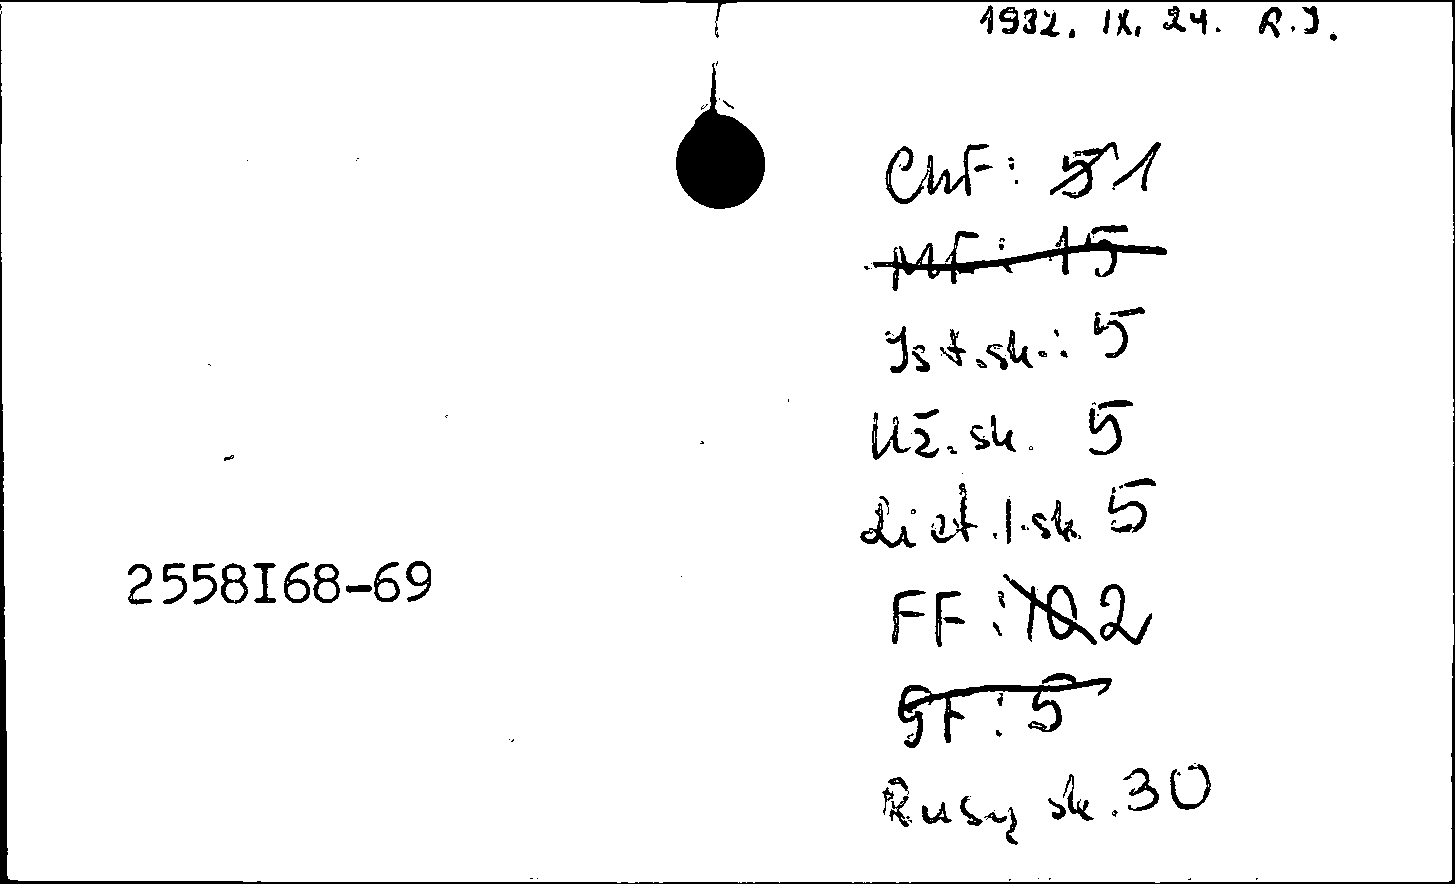 1932. IX. 24. R.J.
ChF: 5 1
MF: 15
Ist.sk.: 5
Už.sk. 5
Liet.l.sk. 5
FF: 10 2
GF: 5
Rusų sk. 30
2558I68-69